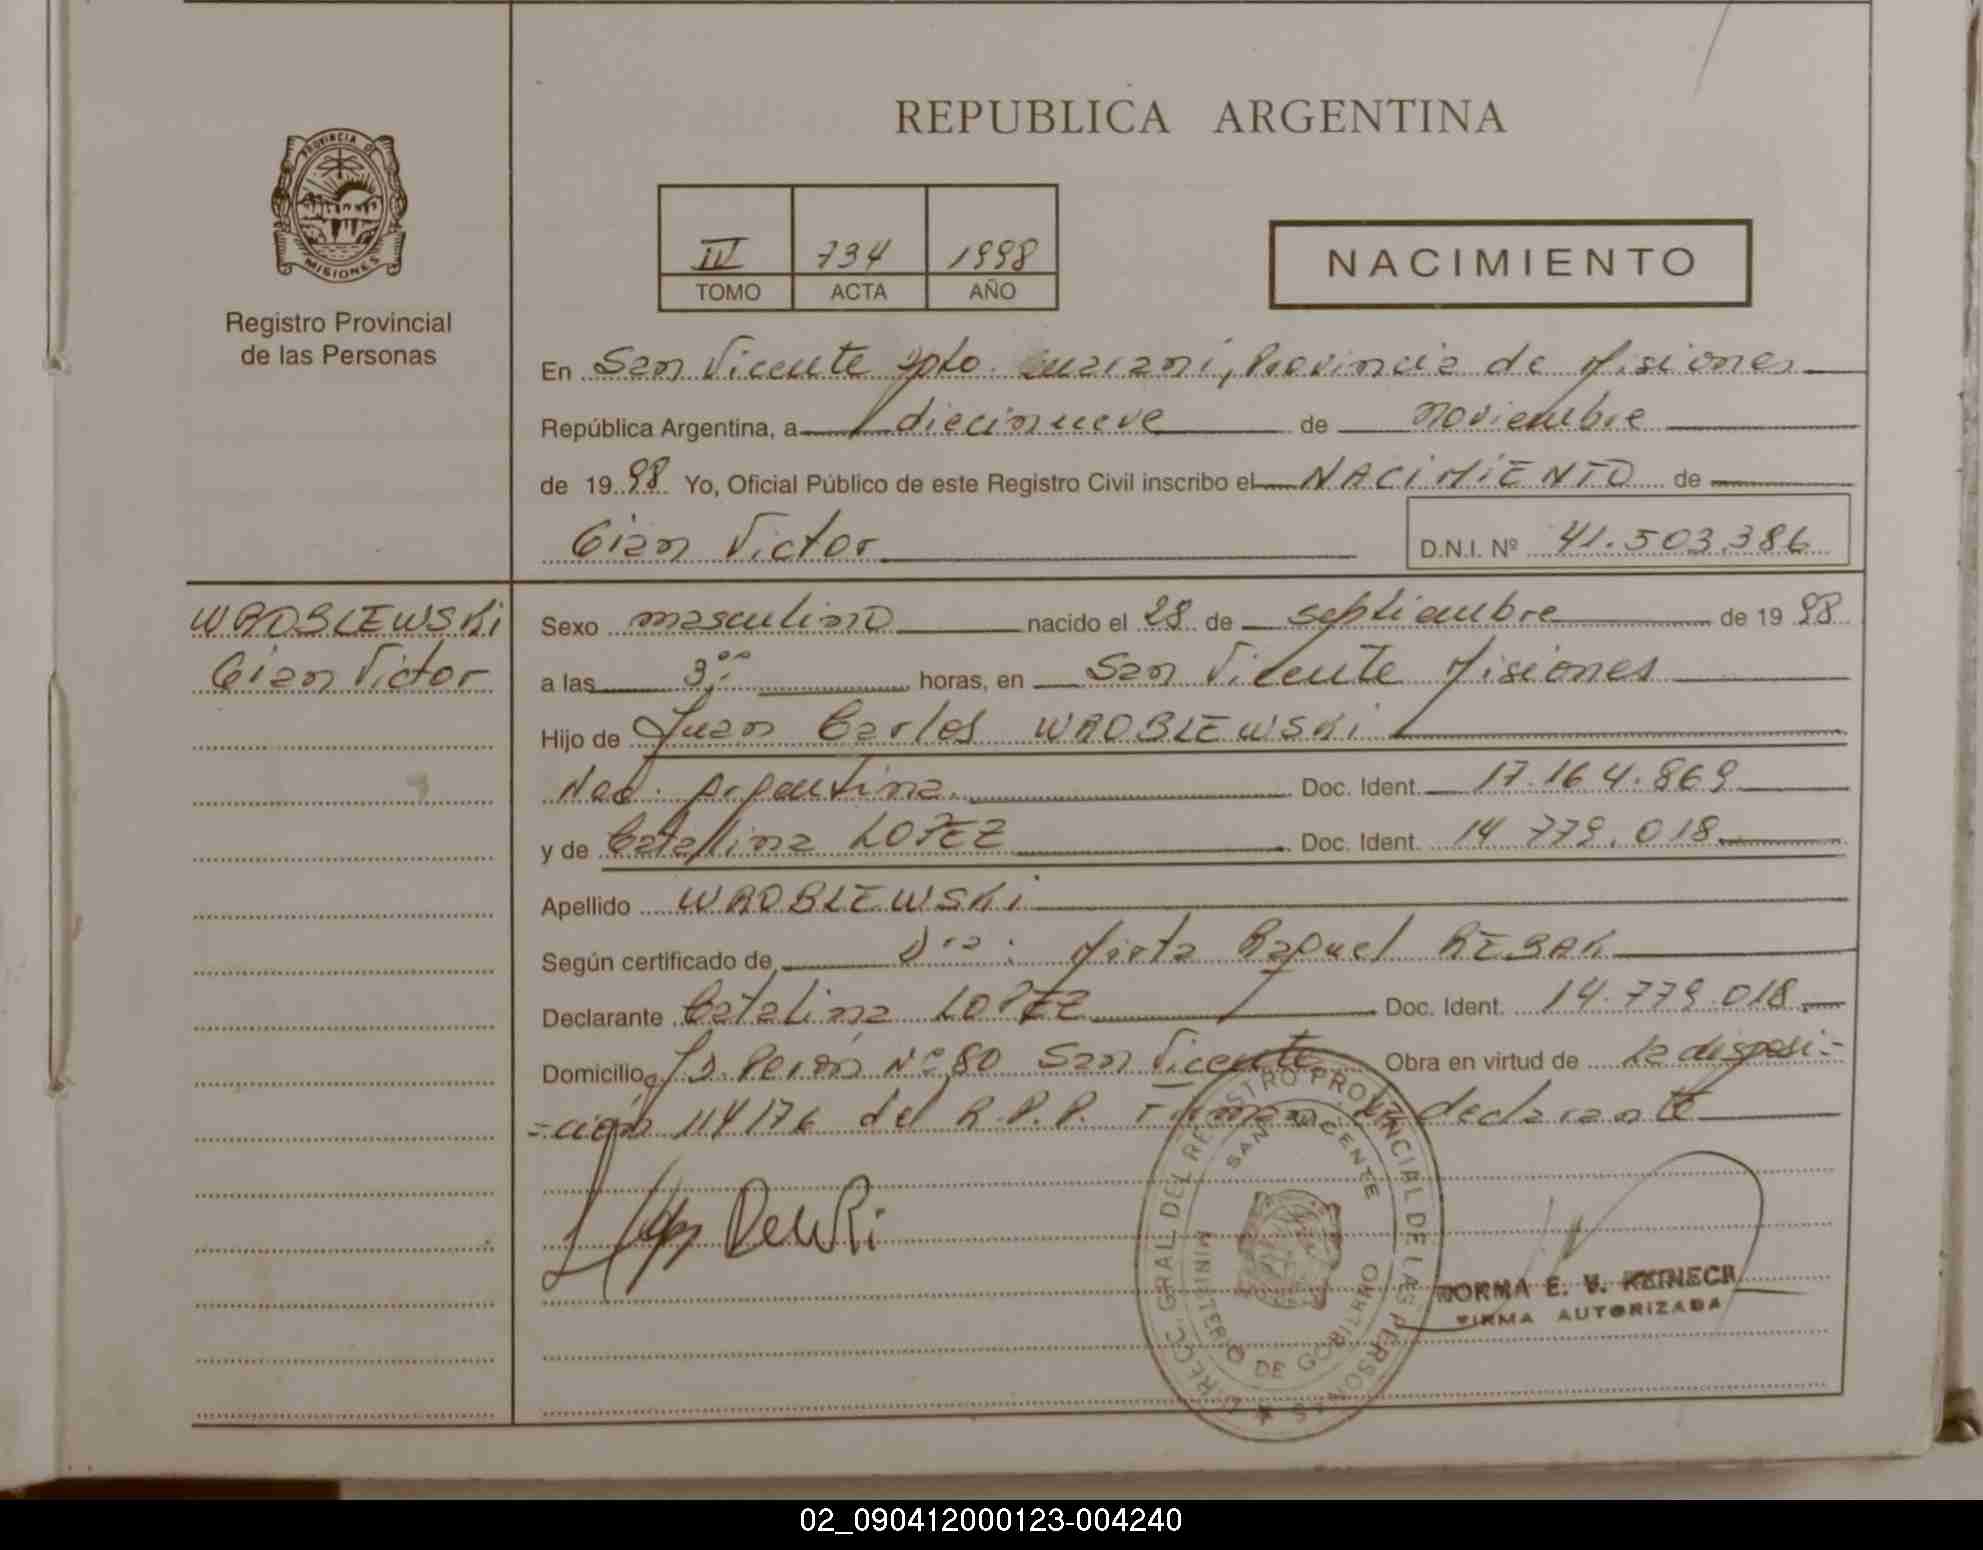 REPUBLICA ARGENTINA
PROVINCIA DE
MISIONES
Registro Provincial
de las Personas
IV 734 1998
TOMO ACTA AÑO
NACIMIENTO
En San Vicente Dpto. Guarani, Provincia de Misiones
República Argentina, a diecinueve de noviembre
de 19 98 Yo, Oficial Público de este Registro Civil inscribo el NACIMIENTO de
Gian Victor D.N.I. Nº 41.503.386
WROBLEWSKi
Gian Victor
Sexo masculino nacido el 28 de septiembre de 19 98
a las 3,00 horas, en San Vicente Misiones
Hijo de Juan Carlos WROBLEWSKi
Nac. Argentina. Doc. Ident. 17.164.869
y de Catalina LOPEZ Doc. Ident. 14.779.018
Apellido WROBLEWSKi
Según certificado de Dra: Mirta Raquel
Declarante Catalina LOPEZ Doc. Ident. 14.779.018
Domicilio J.D. Perón Nº 80 San Vicente Obra en virtud de la disposi-
-ción 114/76 del R.P.P. la declarante
REG. GRAL. DEL REGISTRO PROVINCIAL DE LAS PERSONAS
SAN VICENTE
MINISTERIO DE GOBIERNO
NORMA E. V.
FIRMA AUTORIZADA
02_090412000123-004240